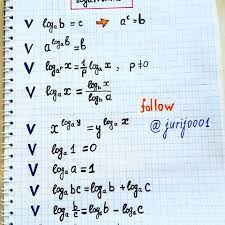 V logₐb = c ⇒ aᶜ = b
V a^(logₐb) = b
V log_(aᵖ) x = 1/p logₐx , p≠0
V logₐx = log_b x / log_b a
follow
V x^(logₐy) = y^(logₐx)
@jurij0001
V logₐ1 = 0
V logₐa = 1
V logₐbc = logₐb + logₐc
V logₐ b/c = logₐb − logₐc